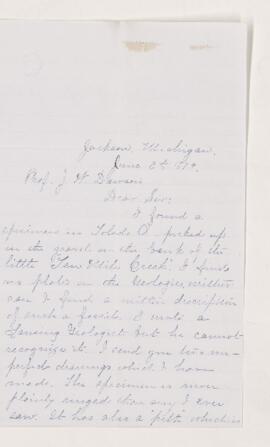 Jackson, Michigan.
June 8th
Prof. J. W. Dawson
Dear Sir:
I found a
specimen in Toledo O. picked up
in the gravel on the bank of the
little "Ten Mile Creek". I find
no plate in the Geologies neither
can I find a written description
of such a fossil. I wrote a
Lansing Geologist but he cannot
recognize it. I send you two im-
perfect drawings which I have
made. The specimen is more
plainly ringed than any I ever
saw. It has also a "pith" which is